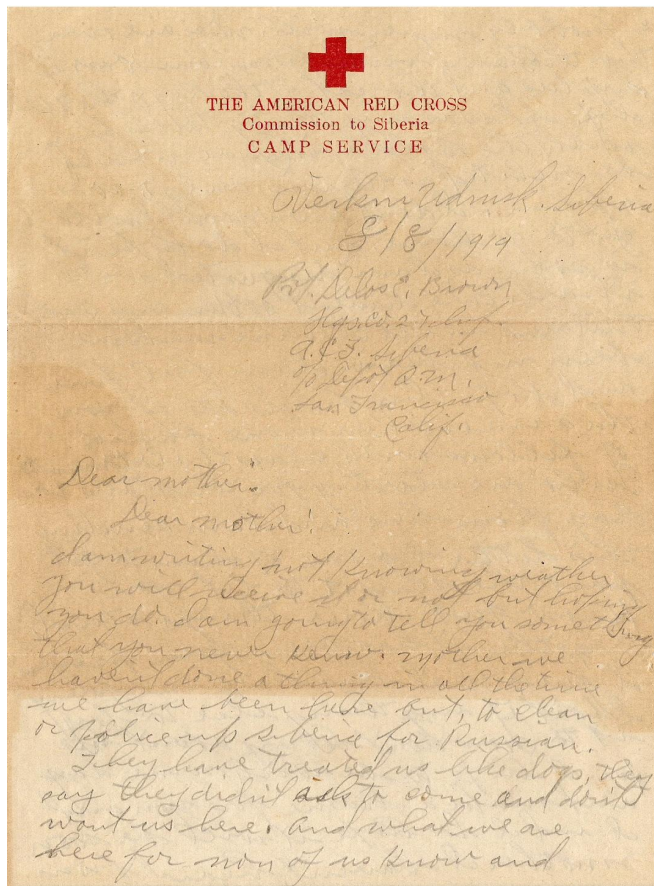 THE AMERICAN RED CROSS
Commission to Siberia
CAMP SERVICE
Verkni Udnisk. Siberia
8/8/1919
Pvt. Delos E. Brown
Hqs. Co. 27 Inf.
A.E.F. Siberia
c/o Depot Q.M.
San Francisco
Calif.
Dear mother.
Dear mother!
I am writing not knowing weather
you will receive it or not but hoping
you do. I am going to tell you something
that you never knew. mother we
haven't done a thing in all the time
we have been here but, to clean
or police up Siberia for Russian.
They have treated us like dogs, they
say they didn't ask to come and don't
want us here. and what we are
here for non of us know and